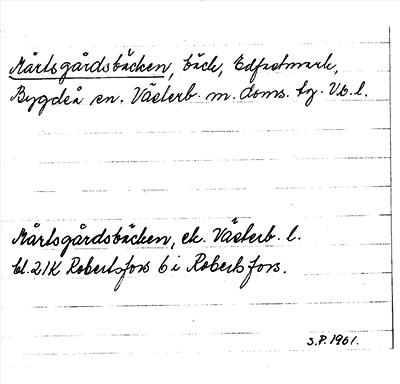 Mårtsgårdsbäcken, bäck, Edfastmark,
Bygdeå sn. Västerb. m. doms. tg. Vb. l.
Mårtsgårdsbäcken, ek. Västerb. l.
bl. 21K Robertsfors 6 i Robertsfors.
S.P. 1961.